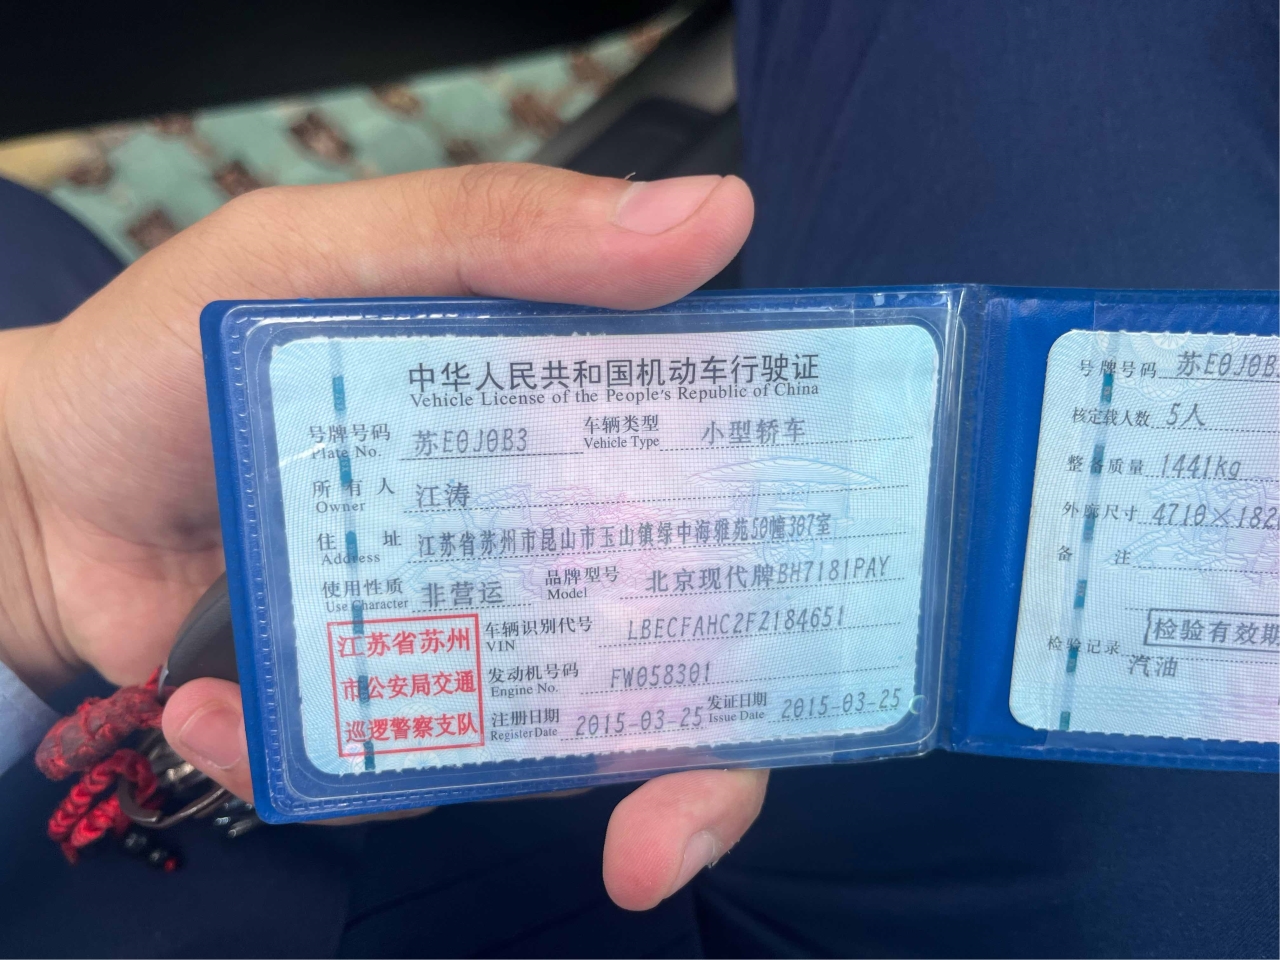 中华人民共和国机动车行驶证
Vehicle License of the People's Republic of China
号牌号码 苏E0J0B3 车辆类型 小型轿车
Plate No. Vehicle Type
所有人 江涛
Owner
住址 江苏省苏州市昆山市玉山镇绿中海雅苑50幢307室
Address
使用性质 非营运 品牌型号 北京现代牌BH7181PAY
Use Character Model
江苏省苏州
市公安局交通
巡逻警察支队
车辆识别代号 LBECFAHC2FZ184651
VIN
发动机号码 FW058301
Engine No.
注册日期 2015-03-25 发证日期 2015-03-25
Register Date Issue Date
号牌号码 苏E0J0B
核定载人数 5人
整备质量 1441kg
外廓尺寸 4710×182
备注
检验有效期
检验记录
汽油